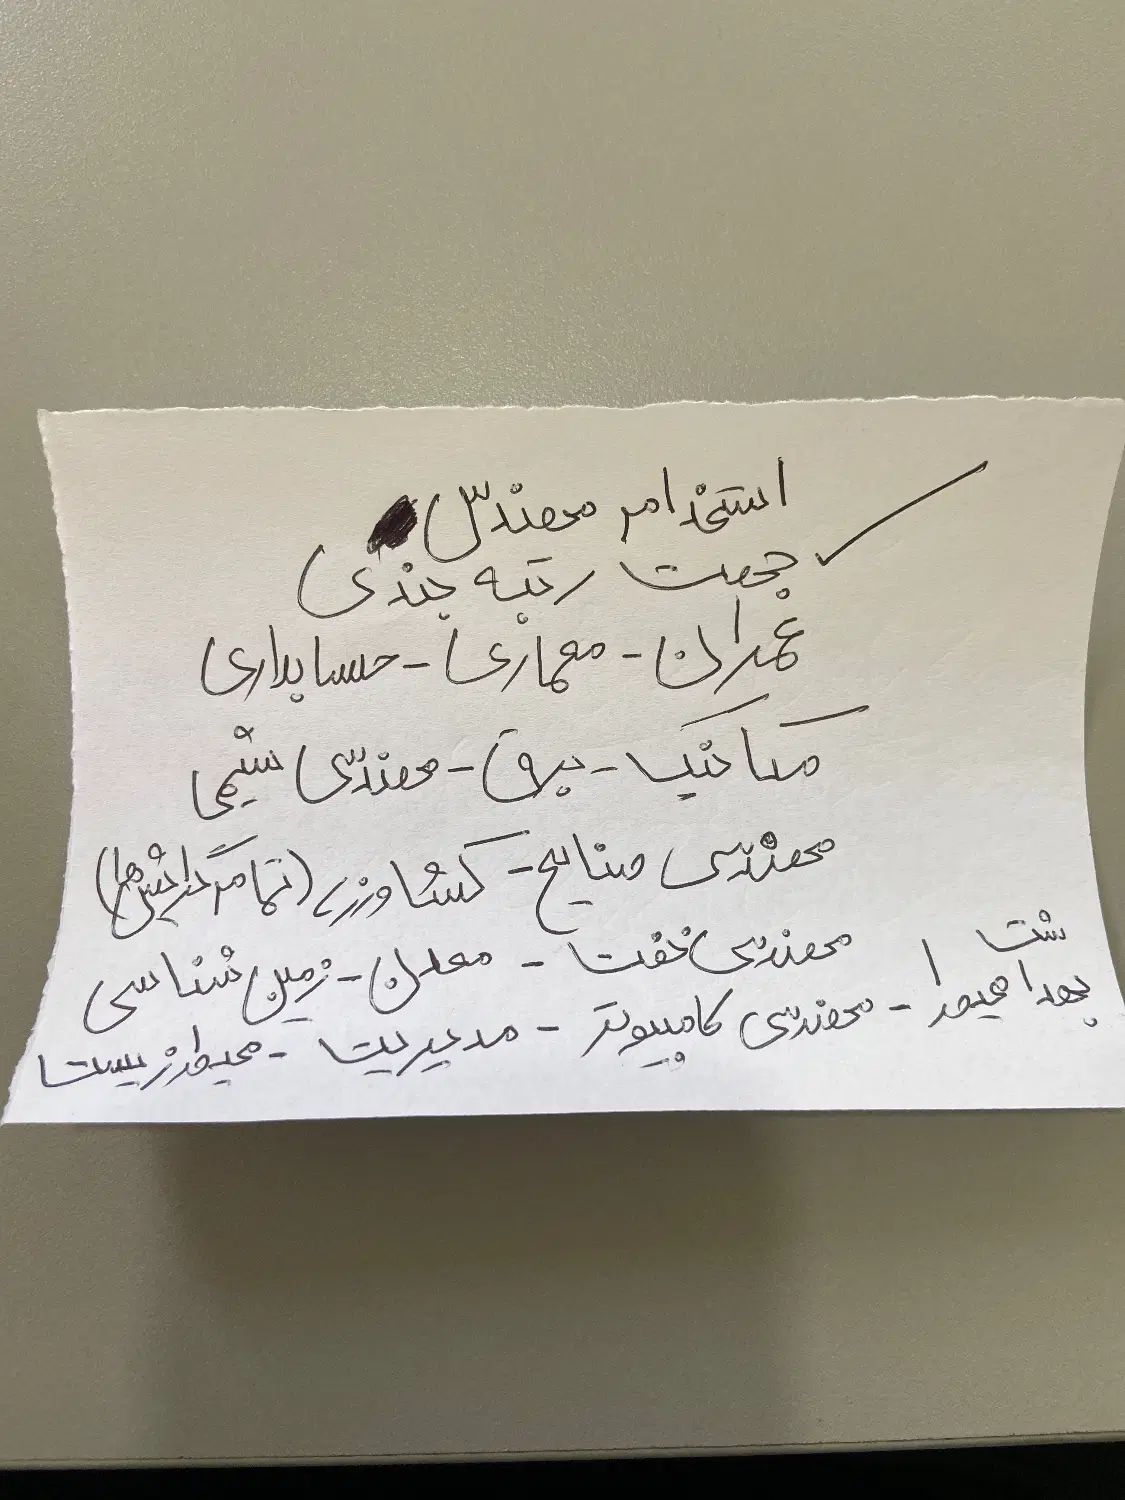 استخدام مهندس
جهت رتبه بندی
عمران - معماری - حسابداری
مکانیک - برق - مهندسی شیمی
مهندسی صنایع - کشاورزی (تمام گرایش ها)
مهندسی نفت - معدن - زمین شناسی
بهداشت محیط - مهندسی کامپیوتر - مدیریت - محیط زیست